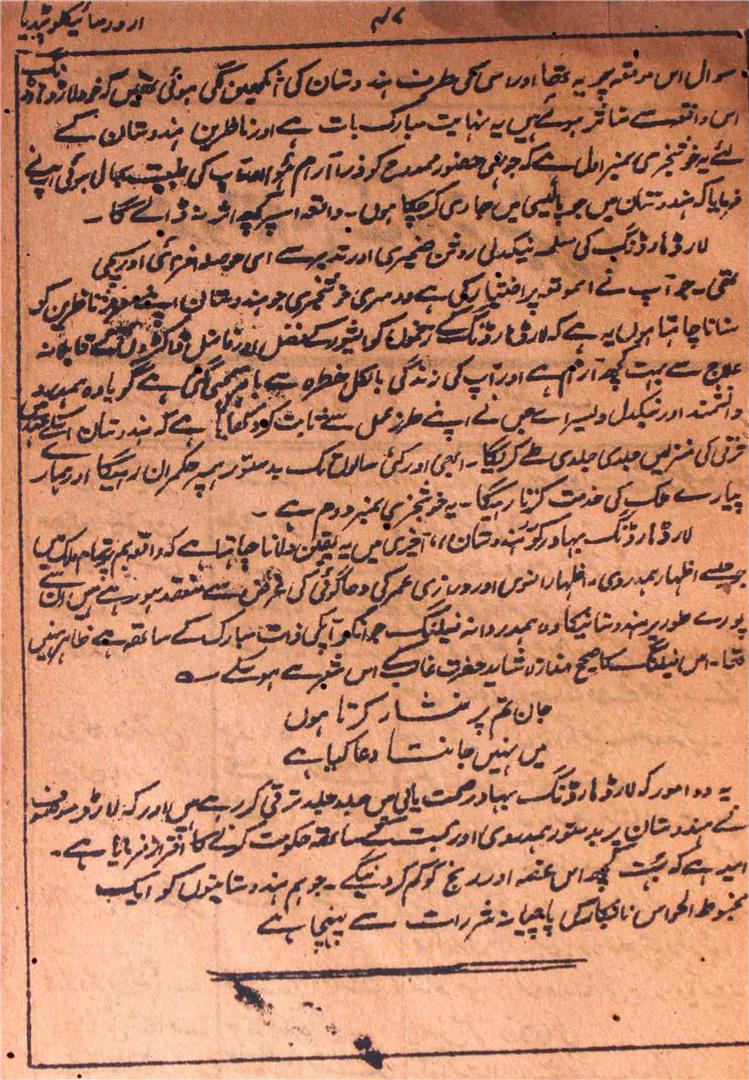 اردو سائیکلوپیڈیا
سوال اس موقعہ پر یہ تھا اور اسی کی طرف ہندوستان کی آنکھیں لگی ہوئی تھیں کہ خود لارڈ ہارڈنگ
اس واقعہ سے متاثر ہوئے ہیں یہ نہایت مبارک بات ہے اور ناظرین ہندوستان کے
لئے یہ خوشخبری نمبر اول ہے کہ جونہی حضور ممدوح کو ذرا آرام ہوا اور آپ کی طبیعت بحال ہوئی آپنے
فرمایا کہ ہندوستان میں جو پالیسی میں جاری کر چکا ہوں۔ واقعہ اسپر کچھ اثر نہ ڈالے گا۔
لارڈ ہارڈنگ کی مسلمہ نیکدلی روشن ضمیری اور تدبر سے اسی حوصلہ افزائی اور
تھی۔ جو آپ نے اس موقعہ پر اختیار کی ہے دوسری خوشخبری جو ہندوستان اپنے ناظرین کو
سنانا چاہتا ہوں یہ ہے کہ لارڈ ہارڈنگ کے زخموں کو ایشور کے فضل اور فاضل ڈاکٹروں کے قابلانہ
علاج سے بہت کچھ آرام ہے اور آپ کی زندگی بالکل خطرہ سے باہر سمجھی گئی ہے گویا وہ ہمدرد
دانشمند اور نیکدل ویسرائے جس نے اپنے طرز عمل سے ثابت کر دکھایا ہے کہ ہندوستان اسکے عہد میں
ترقی کی منزلیں جلدی جلدی طے کریگا۔ ابھی اور کئی سالوں تک بدستور ہمپر حکمران رہیگا اور ہمارے
پیارے ملک کی خدمت کرتا رہیگا۔ یہ خوشخبری نمبر دوم ہے۔
لارڈ ہارڈنگ بہادر کو ہندوستان،، آخری میں یہ یقین دلانا چاہتا ہے کہ واقعہ بم پر تمام ملک میں
جو جلسے اظہار ہمدردی، اظہار افسوس اور درازی عمر کی دعا گوئی کی غرض سے منعقد ہو رہے ہیں ان سے
پورے طور پر ہندوستانیوں کا وہ ہمدردانہ فیلنگ جو انکو آپکی ذات مبارک کے ساتھ ہے ظاہر نہیں
ہوتا۔ اس فیلنگ کا صحیح اندازہ شاید حضرت غالب کے اس شعر سے ہو سکے ؎
جان تم پر نثار کرتا ہوں
میں نہیں جانتا دعا کیا ہے
یہ دو امور کہ لارڈ ہارڈنگ بہادر صحت یابی میں جلد جلد ترقی کر رہے ہیں اور کہ لارڈ موصوف
نے ہندوستان پر بدستور ہمدردی اور محبت کے ساتھ حکومت کرنے کا اقرار فرمایا ہے۔
امید ہے کہ بہت کچھ اس غصہ اور رنج کو کم کر دینگے۔ جو ہم ہندوستانیوں کو ایک
مخبوط الحواس نابکار کی پاجیانہ شرارت سے پہنچا ہے